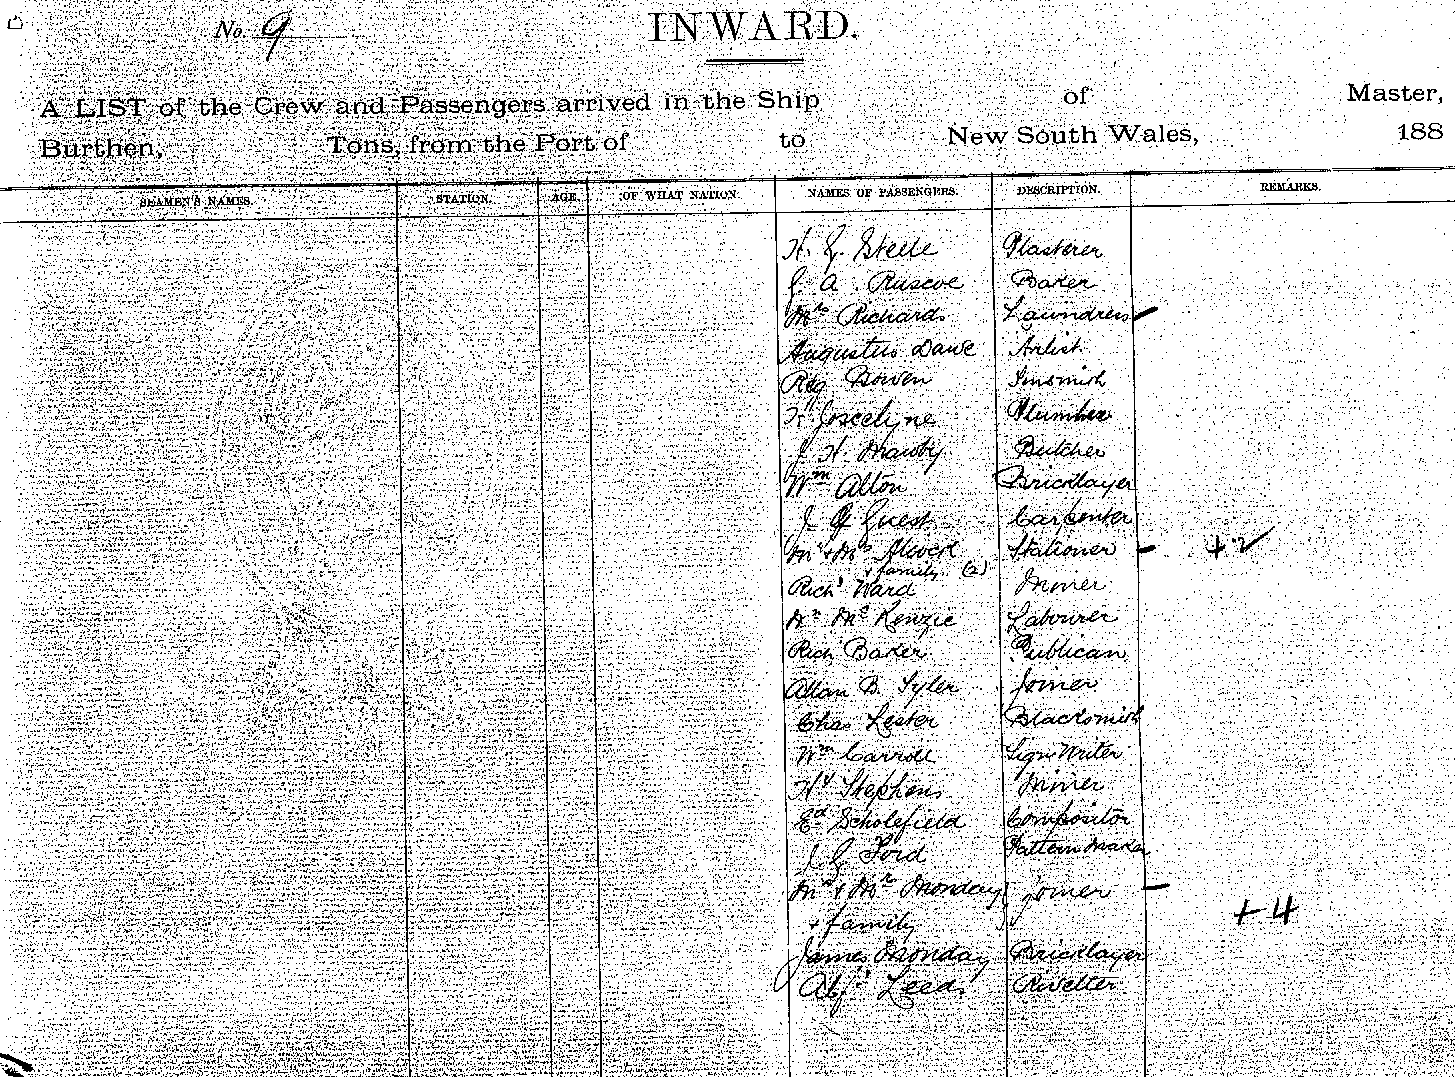 No. 9
INWARD.
A LIST of the Crew and Passengers arrived in the Ship of Master,
Burthen, Tons, from the Port of to New South Wales, 188
SEAMEN'S NAMES. STATION. AGE OF WHAT NATION. NAMES OF PASSENGERS. DESCRIPTION. REMARKS.
H. J. Steele Plasterer
J. A. Ruscoe Baker
Mrs Richards Laundress
Augustus Dawe Artist
Reg Bowen Tinsmith
H Joscelyne Plumber
J H. Mawby Butcher
Wm Alton Bricklayer
J Guest Carpenter
Mr + Mrs Alcock Stationer + 2
+ family (2)
Richd Ward Miner
Mr McKenzie Labourer
Rich Baker Publican
Allan B. Tyler Joiner
Chas Lester Blacksmith
Wm Carroll Sign Writer
Hy Stephens Miner
Ed Scholefield Compositor
J J Ford Pattern Maker
Mr + Mrs Monday Joiner
+ family + 4
James Monday Bricklayer
Alfd Leeds Rivetter